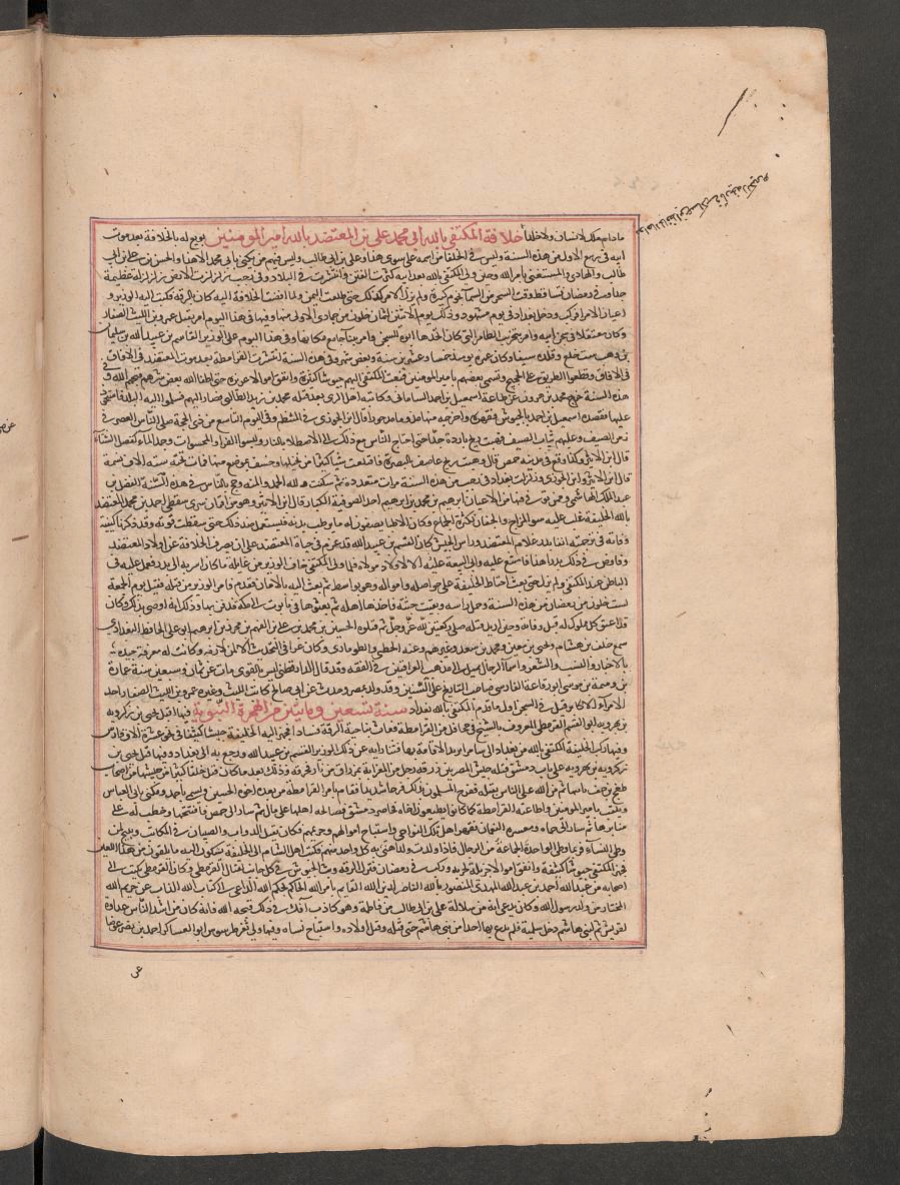 مادام ملك لانسان ولا خلد خلافة المكتفي بالله ابي محمد علي بن المعتضد بالله امير المومنين بويع له بالخلافة بعد موت
ابيه في ربيع الاول من هذه السنة وليس في الخلفا من اسمه علي سوى هذا وعلي بن ابي طالب وليس فيهم من يكنى بابي محمد الا هذا والحسن بن علي بن ابي
طالب والهادي والمستضي بامر الله وحين ولي المكتفي بالله بعد ابيه كثرت الفتن وانتشرت في البلاد وفي رجب زلزلت الارض زلزلة عظيمة
جدا وفي رمضان تساقط وقت السحر من السما نجوم كثيرة ولم يزل الامر كذلك حتى طلعت الشمس ولما افضت الخلافة اليه كان بالرقة فكتب اليه الوزير و
اعيان الامرا فركب ودخل بغداد في يوم مشهود وذلك يوم الاثنين لثمان خلون من جمادى الاولى منها وفيها في هذا اليوم امر بقتل عمرو بن الليث الصفار
وكان معتقلا في سجن ابيه وامر بتخريب المطامير التي كان اتخذها ابوه للسجن وامر ببنا جامع مكانها وفي هذا اليوم على الوزير القاسم بن عبيد الله بن سليمان
بن وهب ست خلع وقلده سيفا وكان عمره يومئذ خمسا وعشرين سنة وبعض شهر وفي هذه السنة انتشرت القرامطة بعد موت المعتضد في الافاق
في الافاق وقطعوا الطريق على الحجيج وتسمى بعضهم بامير المومنين فبعث المكتفي اليهم جيوشا كثيرة وانفق اموالا غزيرة حتى اطفا الله بعض شرهم قبحهم الله وفي
هذه السنة خرج محمد بن هرون عن طاعة اسمعيل بن احمد الساماني وكاتبه اهل الري بعد قتله محمد بن زيد الطالبي فصار اليهم فسلموا اليه البلد فاستحوذ
عليها فقصده اسمعيل بن احمد بالجيوش فقهره واخرجه منها مذموما مدحورا قال ابن الجوزي في المنتظم وفي اليوم التاسع من ذي الحجة صلى الناس العصر في
زمن الصيف وعليهم ثياب الصيف فهبت ريح باردة جدا حتى احتاج الناس مع ذلك الى الاصطلا بالنار ولبسوا الفرا والمحشوات وجمد الماء كفصل الشتا
قال ابن الاثير وكذا وقع في مدينة حمص قال وهبت ريح عاصف بالبصرة فاقتلعت شيا كثيرا من نخيلها وخسف بموضع منها فمات تحته ستة الاف نسمة
قال ابن الاثير وابن الجوزي وزلزلت بغداد في رجب من هذه السنة مرات متعددة ثم سكنت ولله الحمد والمنه وحج بالناس في هذه السنة الفضل بن
عبد الملك الهاشمي وممن توفي فيها من الاعيان ابراهيم بن محمد بن ابراهيم احد الصوفية الكبار قال ابن الاثير وهو من اقران سري سقطي احمد بن محمد المعتضد
بالله الخليفة غلب عليه سو المزاج والجفاف لكثرة الجماع وكان الاطبا يصفون له ما يرطب بدنه فيستعمل ضد ذلك حتى سقطت قوته وقد ذكرنا كيفية
وفاته في ترجمته انفا بدر غلام المعتضد وراس الجيش كان القسم بن عبيد الله قد عزم في حياة المعتضد على ان يصرف الخلافة عن اولاد المعتضد
وفاوض في ذلك بدرا هذا فامتنع عليه وابى البيعة عليه الا لاولاد مولاه فلما ولي المكتفي خاف الوزير من غايلة ما كان اسر به الى بدر فعمل عليه في
الباطن عند المكتفي ولم يزل حتى بعث احتاط الخليفة على حواصله وامواله وهو بواسط ثم بعث اليه بالامان فقدم فامر الوزير من قتله فقتل يوم الجمعة
لست خلون من رمضان من هذه السنة وحمل راسه وبقيت جثته فاخذها اهله ثم بعثوها في تابوت الى مكة فدفن بها وذلك انه اوصى بذلك وكان
قد اعتق كل مملوك له قبل وفاته وحين اريد قتله صلى ركعتين لله عز وجل ثم قتلوه الحسين بن محمد بن عبد الرحمن بن الفهم بن محرز بن ابراهيم ابو علي الحافظ البغدادي
سمع خلف بن هشام ويحيى بن معين ومحمد بن سعد وغيرهم وعنه الخطبي والطوماري وكان عسرا في التحدث الا لمن لازمه وكانت له معرفة جيدة
بالاخبار والنسب والشعر واسما الرجال يميل الى مذهب العراقيين في الفقه وقد قال الدارقطني ليس بالقوي مات عن ثمان وسبعين سنة عمارة
بن وثيمة بن موسى ابو رفاعة الفارسي صاحب التاريخ على السنين وقد ولد بمصر وحدث عن ابي صالح كاتب الليث وغيره عمرو بن الليث الصفار احد
الامراء الاكابر وقتل في السجن اول ما قدم المكتفي بالله بغداد سنة تسعين ومايتين من الهجرة النبوية فيها اقبل يحيى بن زكرويه
بن مهرويه ابو القسم القرمطي المعروف بالشيخ في جحافل من القرامطة فعاث بناحية الرقة فسادا فجهز اليه الخليفة جيشا كثيفا في نحو عشرة الاف فارس
وفيها ركب الخليفة المكتفي بالله من بغداد الى سامرا يريد الاقامة بها فثنا رايه عن ذلك الوزير القسم بن عبيد الله ورجع به الى بغداد وفيها قتل يحيى بن
زكرويه بن مهرويه على باب دمشق قتله جيش المصريين زرقه رجل من المغاربة بمزراق من نار فحرقه وذلك بعد ما كان قتل خلقا كثيرا من جيشها من اصحاب
طغج بن جف نايبها ثم من الله على الناس بقتله ففرح المسلمون بذلك فرحا شديدا فقام بامر القرامطة من بعده اخوه الحسين وتسمى باحمد وتكنى بابي العباس
وتلقب بامير المومنين واطاعته القرامطة كما كانوا يطيعون اخاه فحاصر دمشق فصالحه اهلها على مال ثم سار الى حمص فافتتحها وخطب له على
منابرها ثم سار الى حماه ومعرة النعمان فقهر اهل تلك النواحي واستباح اموالهم وحريمهم فكان يقتل الدواب والصبيان في المكاتب ويبيح لمن
وطي النساء فربما وطي الواحدة الجماعة من الرجال فاذا ولدت ولدا هني به كل واحد منهم فكتب اهل الشام الى الخليفة يشكون اليه ما يلقون من هذا اللعين
فجهز المكتفي جيوشا كثيفة وانفق اموالا جزيلة لحربه وركب في رمضان فنزل الرقة وبث الجيوش في كل جانب لقتال القرمطي وكان القرمطي يكتب الى
اصحابه من عبد الله احمد بن عبد الله المهدي المنصور بالله الناصر لدين الله القايم بامر الله الحاكم بحكم الله الداعي الى كتاب الله الذاب عن حريم الله
المختار من ولد رسول الله وكان يدعي انه من سلالة علي بن ابي طالب من فاطمة وهو كاذب افاك في ذلك قبحه الله فانه كان من اشد الناس عداوة
لقريش ثم لبني هاشم دخل سلمية فلم يدع بها احدا من بني هاشم حتى قتله وقتل اولاده واستباح نساه وفيها ولي ثغر طرسوس ابو العساكر احمد بن نصر عوضا